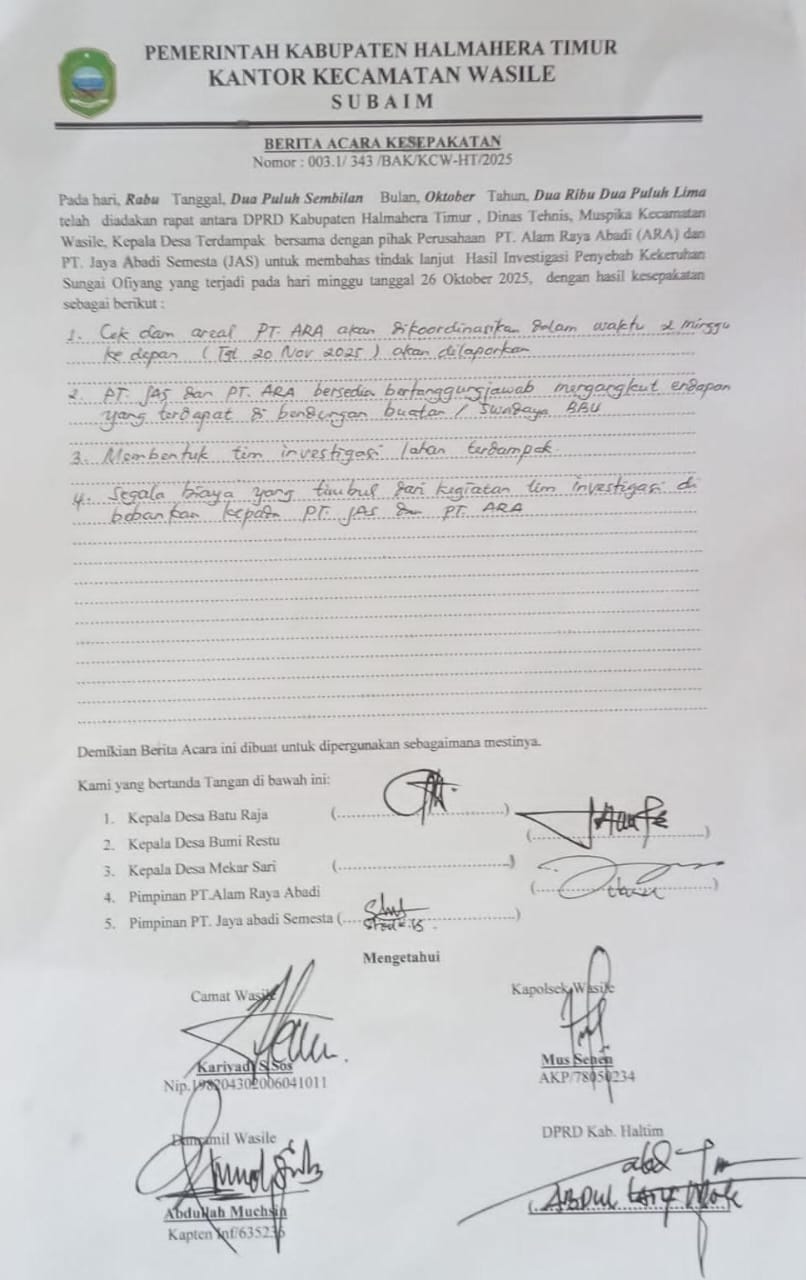 PEMERINTAH KABUPATEN HALMAHERA TIMUR
KANTOR KECAMATAN WASILE
SUBAIM
BERITA ACARA KESEPAKATAN
Nomor : 003.1/ 343 /BAK/KCW-HT/2025
Pada hari, Rabu Tanggal, Dua Puluh Sembilan Bulan, Oktober Tahun, Dua Ribu Dua Puluh Lima
telah diadakan rapat antara DPRD Kabupaten Halmahera Timur , Dinas Tehnis, Muspika Kecamatan
Wasile, Kepala Desa Terdampak bersama dengan pihak Perusahaan PT. Alam Raya Abadi (ARA) dan
PT. Jaya Abadi Semesta (JAS) untuk membahas tindak lanjut Hasil Investigasi Penyebab Kekeruhan
Sungai Ofiyang yang terjadi pada hari minggu tanggal 26 Oktober 2025, dengan hasil kesepakatan
sebagai berikut :
1. Cek dam areal PT. ARA akan dikoordinasikan dalam waktu 2 minggu
ke depan ( Tgl 20 Nov 2025 ) akan dilaporkan
2. PT. JAS dan PT. ARA bersedia bertanggungjawab mengangkut endapan
yang terdapat di bendungan buatan / Swadaya BBU
3. Membentuk tim investigasi lahan terdampak
4. Segala biaya yang timbul dari kegiatan tim investigasi di
bebankan kepada PT. JAS dan PT. ARA
Demikian Berita Acara ini dibuat untuk dipergunakan sebagaimana mestinya.
Kami yang bertanda Tangan di bawah ini:
1. Kepala Desa Batu Raja
2. Kepala Desa Bumi Restu
3. Kepala Desa Mekar Sari
4. Pimpinan PT.Alam Raya Abadi
5. Pimpinan PT. Jaya abadi Semesta
Mengetahui
Camat Wasile
Kapolsek Wasile
Kariyadi S.Sos
Nip.198204302006041011
Mus Sehen
AKP/78050234
Wasile
DPRD Kab. Haltim
Abdullah Muchsin
Kapten Inf/635236
ABDUL